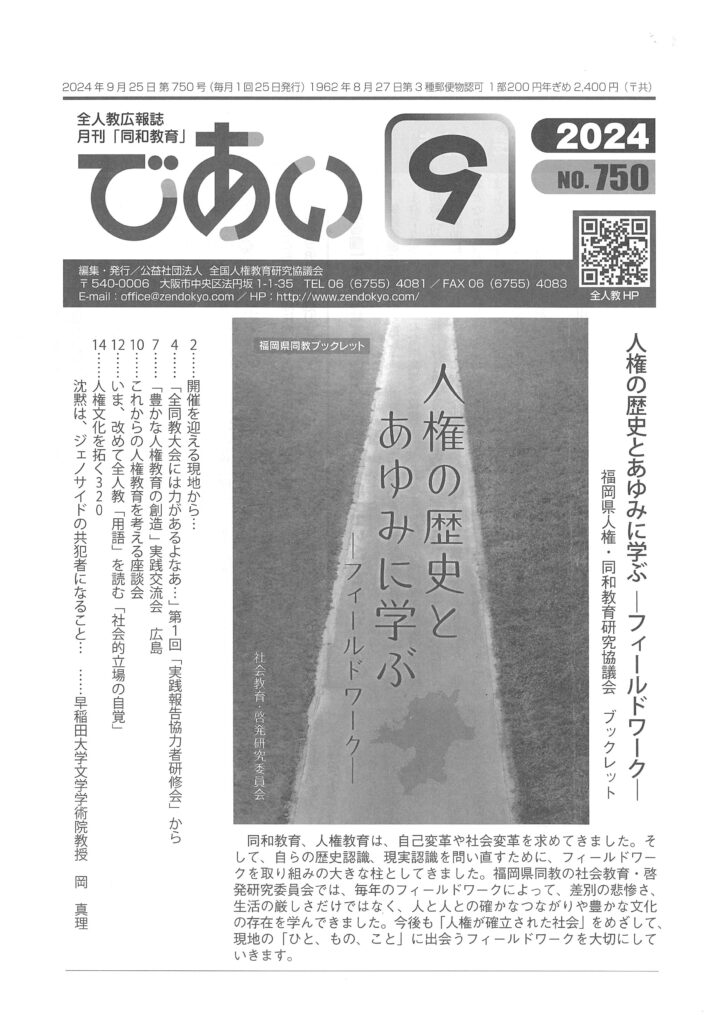 2024年9月25日第750号(毎月1回25日発行)1962年8月27日第3種郵便物認可 1部200円年ぎめ2,400円(〒共)
全人教広報誌
月刊「同和教育」
であい
9
2024
NO. 750
編集・発行/公益社団法人 全国人権教育研究協議会
〒540-0006 大阪市中央区法円坂1-1-35 TEL 06(6755)4081/FAX 06(6755)4083
E-mail:office@zendokyo.com/HP:http://www.zendokyo.com/
全人教HP
人権の歴史とあゆみに学ぶ ―フィールドワーク―
福岡県人権・同和教育研究協議会 ブックレット
福岡県同教ブックレット
人権の歴史と
あゆみに学ぶ
―フィールドワーク―
社会教育・啓発研究委員会
2……開催を迎える現地から…
4……「全同教大会には力があるよなあ…」第1回「実践報告協力者研修会」から
7……「豊かな人権教育の創造」実践交流会 広島
10……これからの人権教育を考える座談会
12……いま、改めて全人教「用語」を読む「社会的立場の自覚」
14……人権文化を拓く320
沈黙は、ジェノサイドの共犯者になること… ……早稲田大学文学学術院教授 岡 真理
同和教育、人権教育は、自己変革や社会変革を求めてきました。そ
して、自らの歴史認識、現実認識を問い直すために、フィールドワー
クを取り組みの大きな柱としてきました。福岡県同教の社会教育・啓
発研究委員会では、毎年のフィールドワークによって、差別の悲惨さ、
生活の厳しさだけではなく、人と人との確かなつながりや豊かな文化
の存在を学んできました。今後も「人権が確立された社会」をめざして、
現地の「ひと、もの、こと」に出会うフィールドワークを大切にして
いきます。